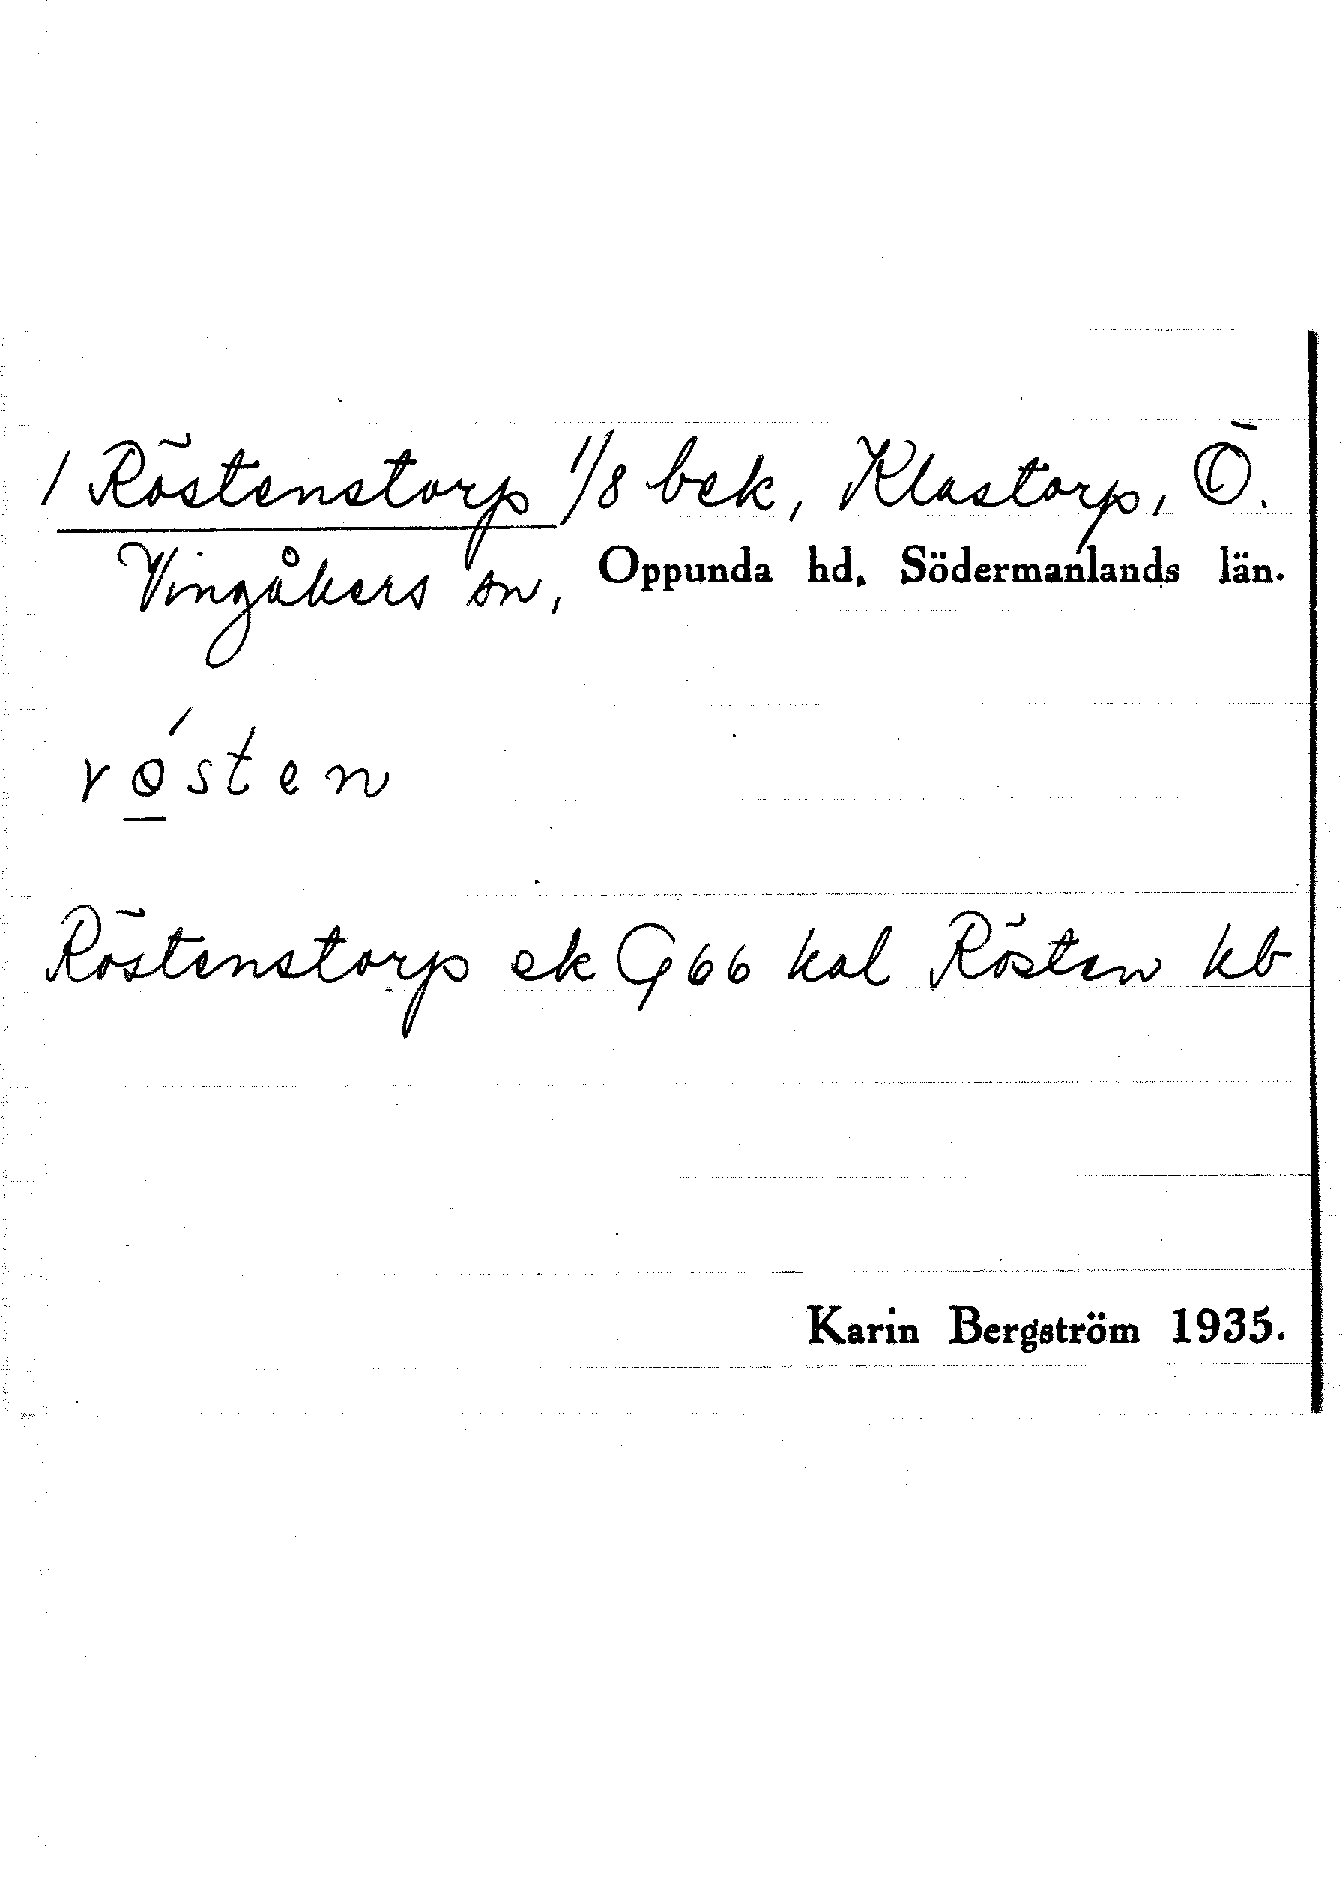 1 Röstenstorp 1/8 bek, Klastorp, Ö.
Vingåkers sn, Oppunda hd. Södermanlands län.
rǿ̲sten
Röstenstorp ek G 66 kal Rösten kb
Karin Bergström 1935.